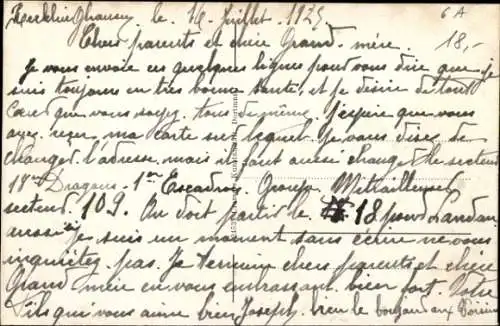 Recklinghausen, le 16 Juillet 1925
6 A
18,-
Chers parents et chère Grand-mère
Je vous envoie ces quelques lignes pour vous dire que je
suis toujours en très bonne santé, et je désire de tout
cœur que vous soyez tous de même. J'espère que vous
avez reçu ma carte sur lequel je vous disez de
changer l'adresse, mais il faut aussi changer le secteur
18ème Dragons - 1er Escadron, Groupe Mitrailleuses
secteur 109. On doit partir le 18 pour Landau
aussi je suis un moment sans écrire ne vous
inquiétez pas. Je termine chers parents et chère
Grand mère en vous embrassant bien fort. Votre
fils qui vous aime bien Joseph. bien le bonjour aux